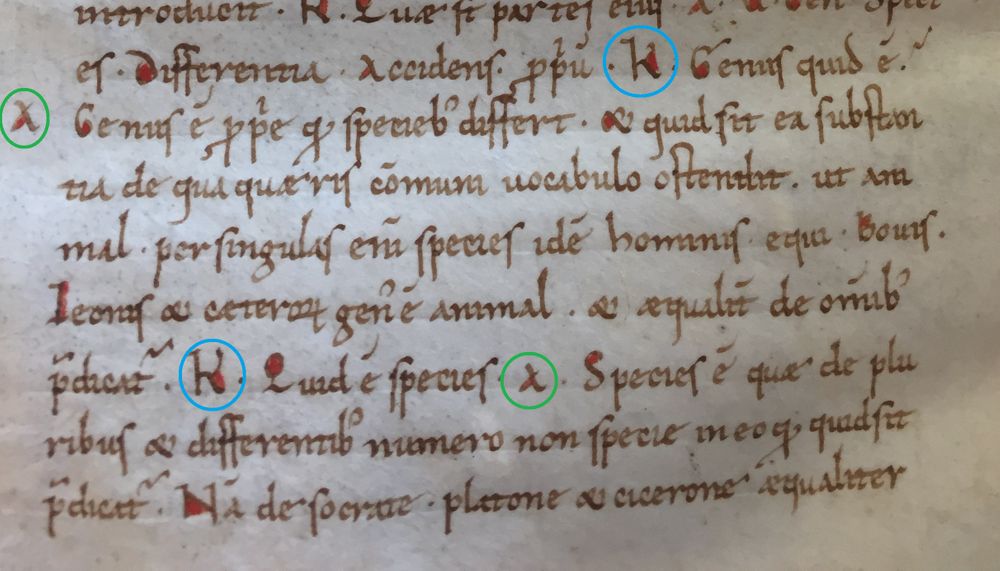 introducit. K. Quæ st partes eius. A. A. Gen Speci
es. Differentia. Accidens. ꝓp̄ũ. K. Genus quid ē.
A Genus ē ꝓp̄e qđ specieb' differt. & quid sit ea substan
tia de qua quæris cōmuni uocabulo ostendit. ut ani
mal. per singulas eni species idē hominis equi. bouis.
leonis & cæteroꝝ gen' ē animal. & æqualit̄ de omīb'
p̄dicat~. K. Quid ē species. A. Species ē quæ de plu
ribus & differentib' numero non specie in eo qđ quid sit
p̄dicat~. Nā de socrate. platone & cicerone æqualiter